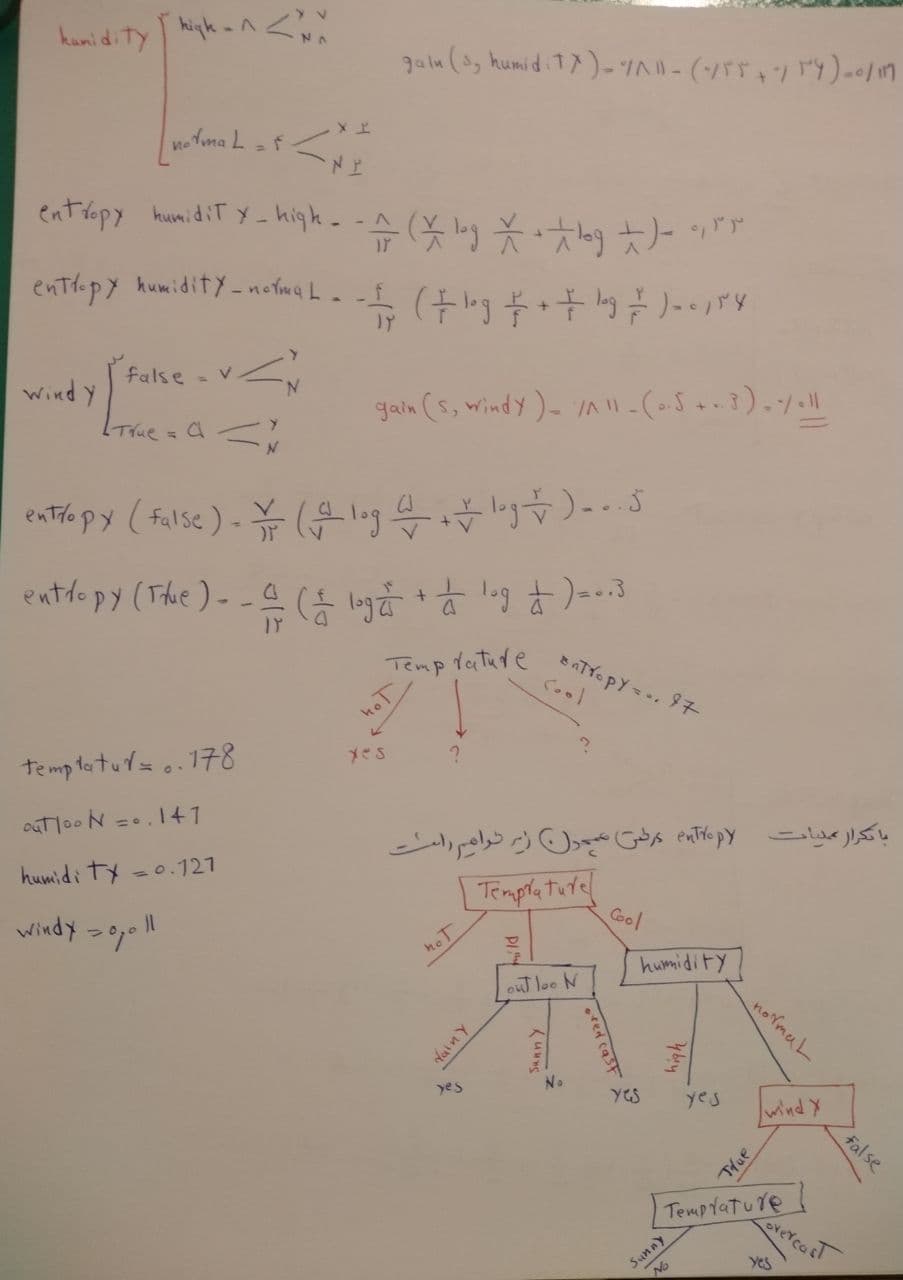 humidity
high = ۸
Y ۷
N ۱
gain(s, humidity) = ۰/۸۱۱ - (۰/۳۳ + ۰/۳۴) = ۰/۱۲۷
normal = ۴
Y ۲
N ۲
entropy humidity - high = - ۸/۱۲ (۷/۸ log ۷/۸ + ۱/۸ log ۱/۸) = ۰,۳۳
entropy humidity - normal = - ۴/۱۲ (۲/۴ log ۲/۴ + ۲/۴ log ۲/۴) = ۰,۳۴
windy
False = ۷
Y
N
gain(s, windy) = ۰/۸۱۱ - (0.5 + 0.3) = ۰/۰۱۱
True = ۵
Y
N
entropy (false) = ۷/۱۲ (۵/۷ log ۵/۷ + ۲/۷ log ۲/۷) = 0.5
entropy (True) = - ۵/۱۲ (۴/۵ log ۴/۵ + ۱/۵ log ۱/۵) = 0.3
Temprature entropy = 0.97
hoT
Cool
yes
?
?
temprature = 0.178
outlook = 0.147
humidity = 0.127
windy = 0,011
با تکرار عملیات entropy درختی همچون زیر خواهیم داشت
Temprature
hoT
Cool
outlook
humidity
rainy
sunny
overcast
high
normal
yes
No
yes
yes
windy
True
false
Temprature
sunny
overcast
No
yes